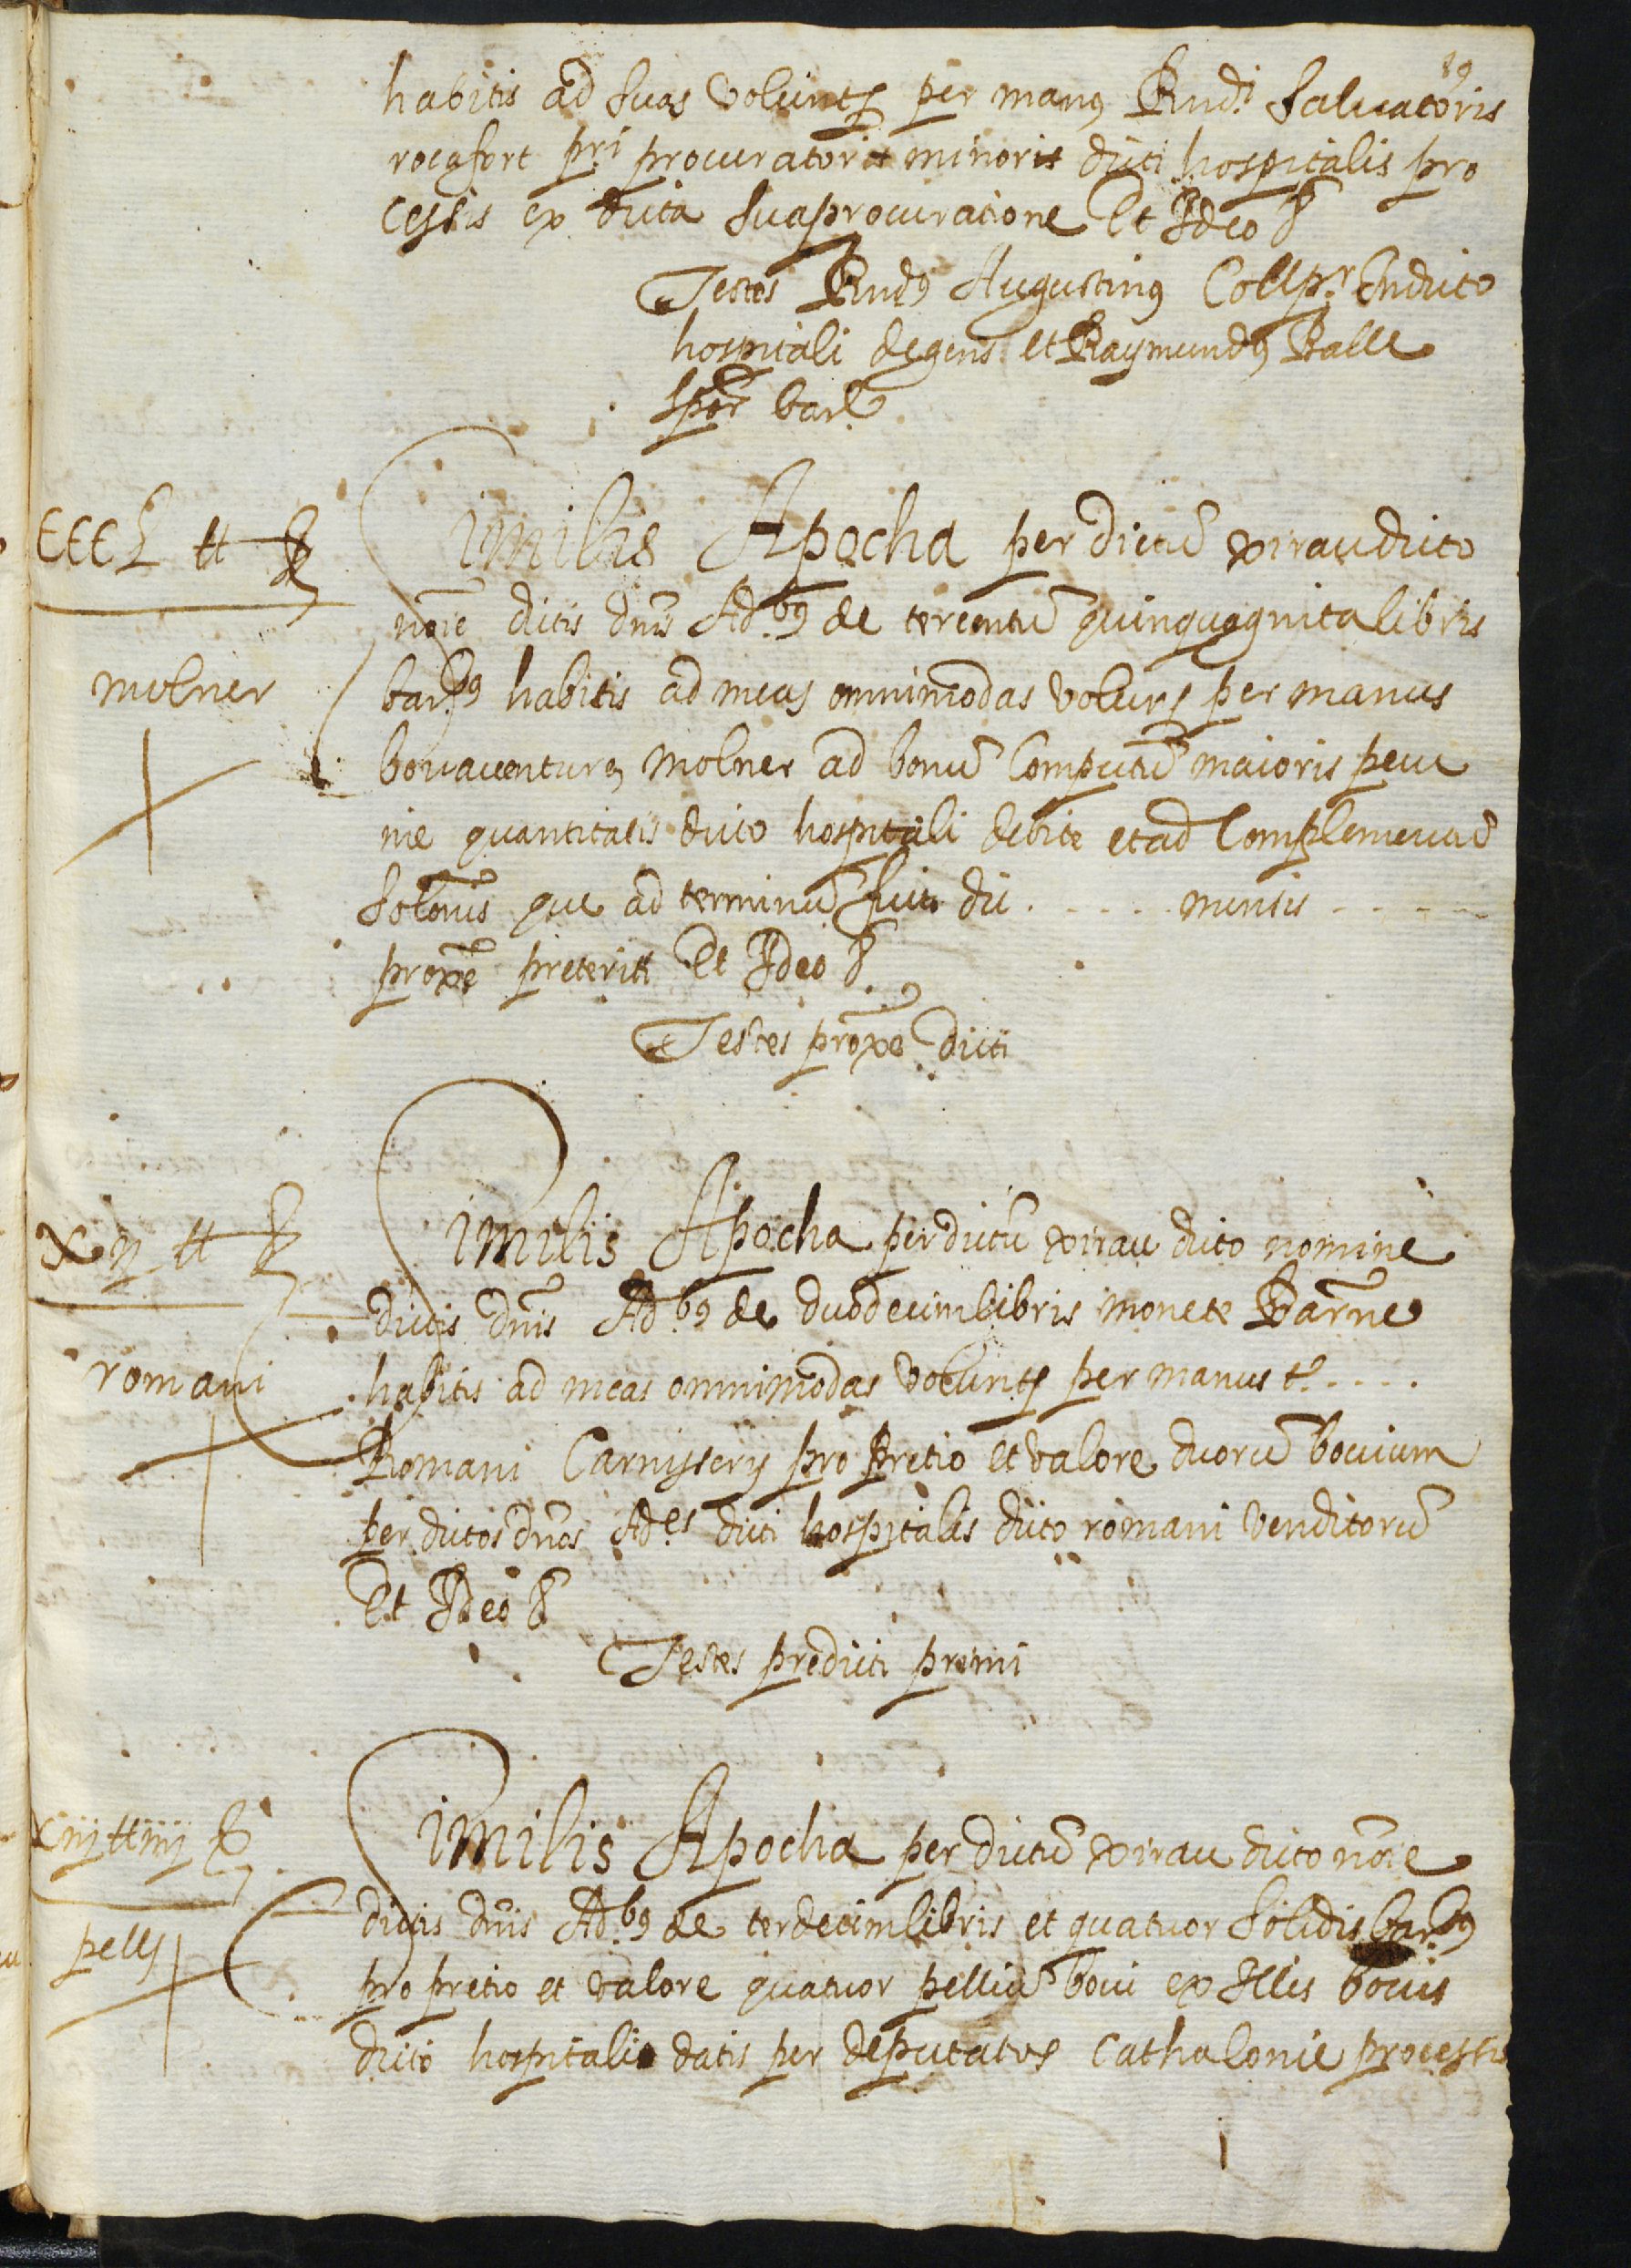 19
habitis ad suas volunt̃s per manꝯ Rnd.i Salvatoris
rocafort pri procuratoris minoris dicti hospitalis pro
cessis ex dicta sua procuratione Et Ideo &
Testes Rndꝯ Augustinꝯ Coll pr. In dicto
hospitali degens et Raymundꝯ Balle
bar.e
CCCL ₶ ß
Similis Apocha per dictũ xirau dicto
nõie dictis dñis Ad.bꝯ de tercentũ quinquaginta libris
molner
bar.bꝯ habitis ad meas omnimodas volunts per manus
bonaventure molner ad bonũ Computũ maioris pecu
nie quantitatis dicto hospitali debite et ad Complementũ
solonis que ad terminũ fuit die . - - . . mensis - - - -
proxẽ preteriti Et Ideo &.
Testes prõxe dicti
xij ₶ ß
Similis Apocha per dictũ xirau dicto nomine
dictis dñis Ad.bꝯ de duodecim libris monete Barñe
romani
habitis ad meas omnimodas volunts per manus t. . - - - .
Romani Carnissery pro pretio et valore duorũ bovium
per dictos dños Ad.es dicti hospitalis dicto romani venditorũ
Et Ideo &
Testes predicti proxmi
xiij ₶ iiij ß
Similis Apocha per dictũ xirau dicto nõie
dictis dñis Ad.bꝯ de terdecim libris et quatuor solidis bar.bꝯ
pells
pro pretio et valore quatuor pelliũ bovi ex Illis bovis
dicto hospitali datis per deputatos Cathalonie processis